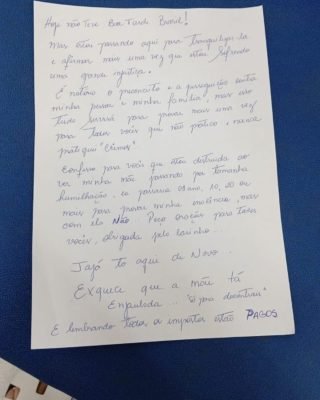 Hoje não Teve Boa Tarde Brasil!
Mas estou passando aqui para tranquiliza-los
e afirmar mais uma vez que estou sofrendo
uma grande injustiça.
É notório o preconceito e a perseguição contra
minha pessoa e minha família, mas isso
tudo servirá para provar mais uma vez
para todos vocês que não pratico e nunca
pratiquei "Crimes".
Confesso para vocês que estou destruída ao
ver minha mãe passando por tamanha
humilhação, eu passaria 01 ano, 10, 20 ou
mais para provar minha inocência, mas
com ela Não. Peço orações para todos
vocês, obrigada pelo carinho...
Jajá to aqui de Novo...
Exquece que a mãe tá
Enpulsada... "só para descontrair"
E lembrando todos os impostos estão PAGOS.